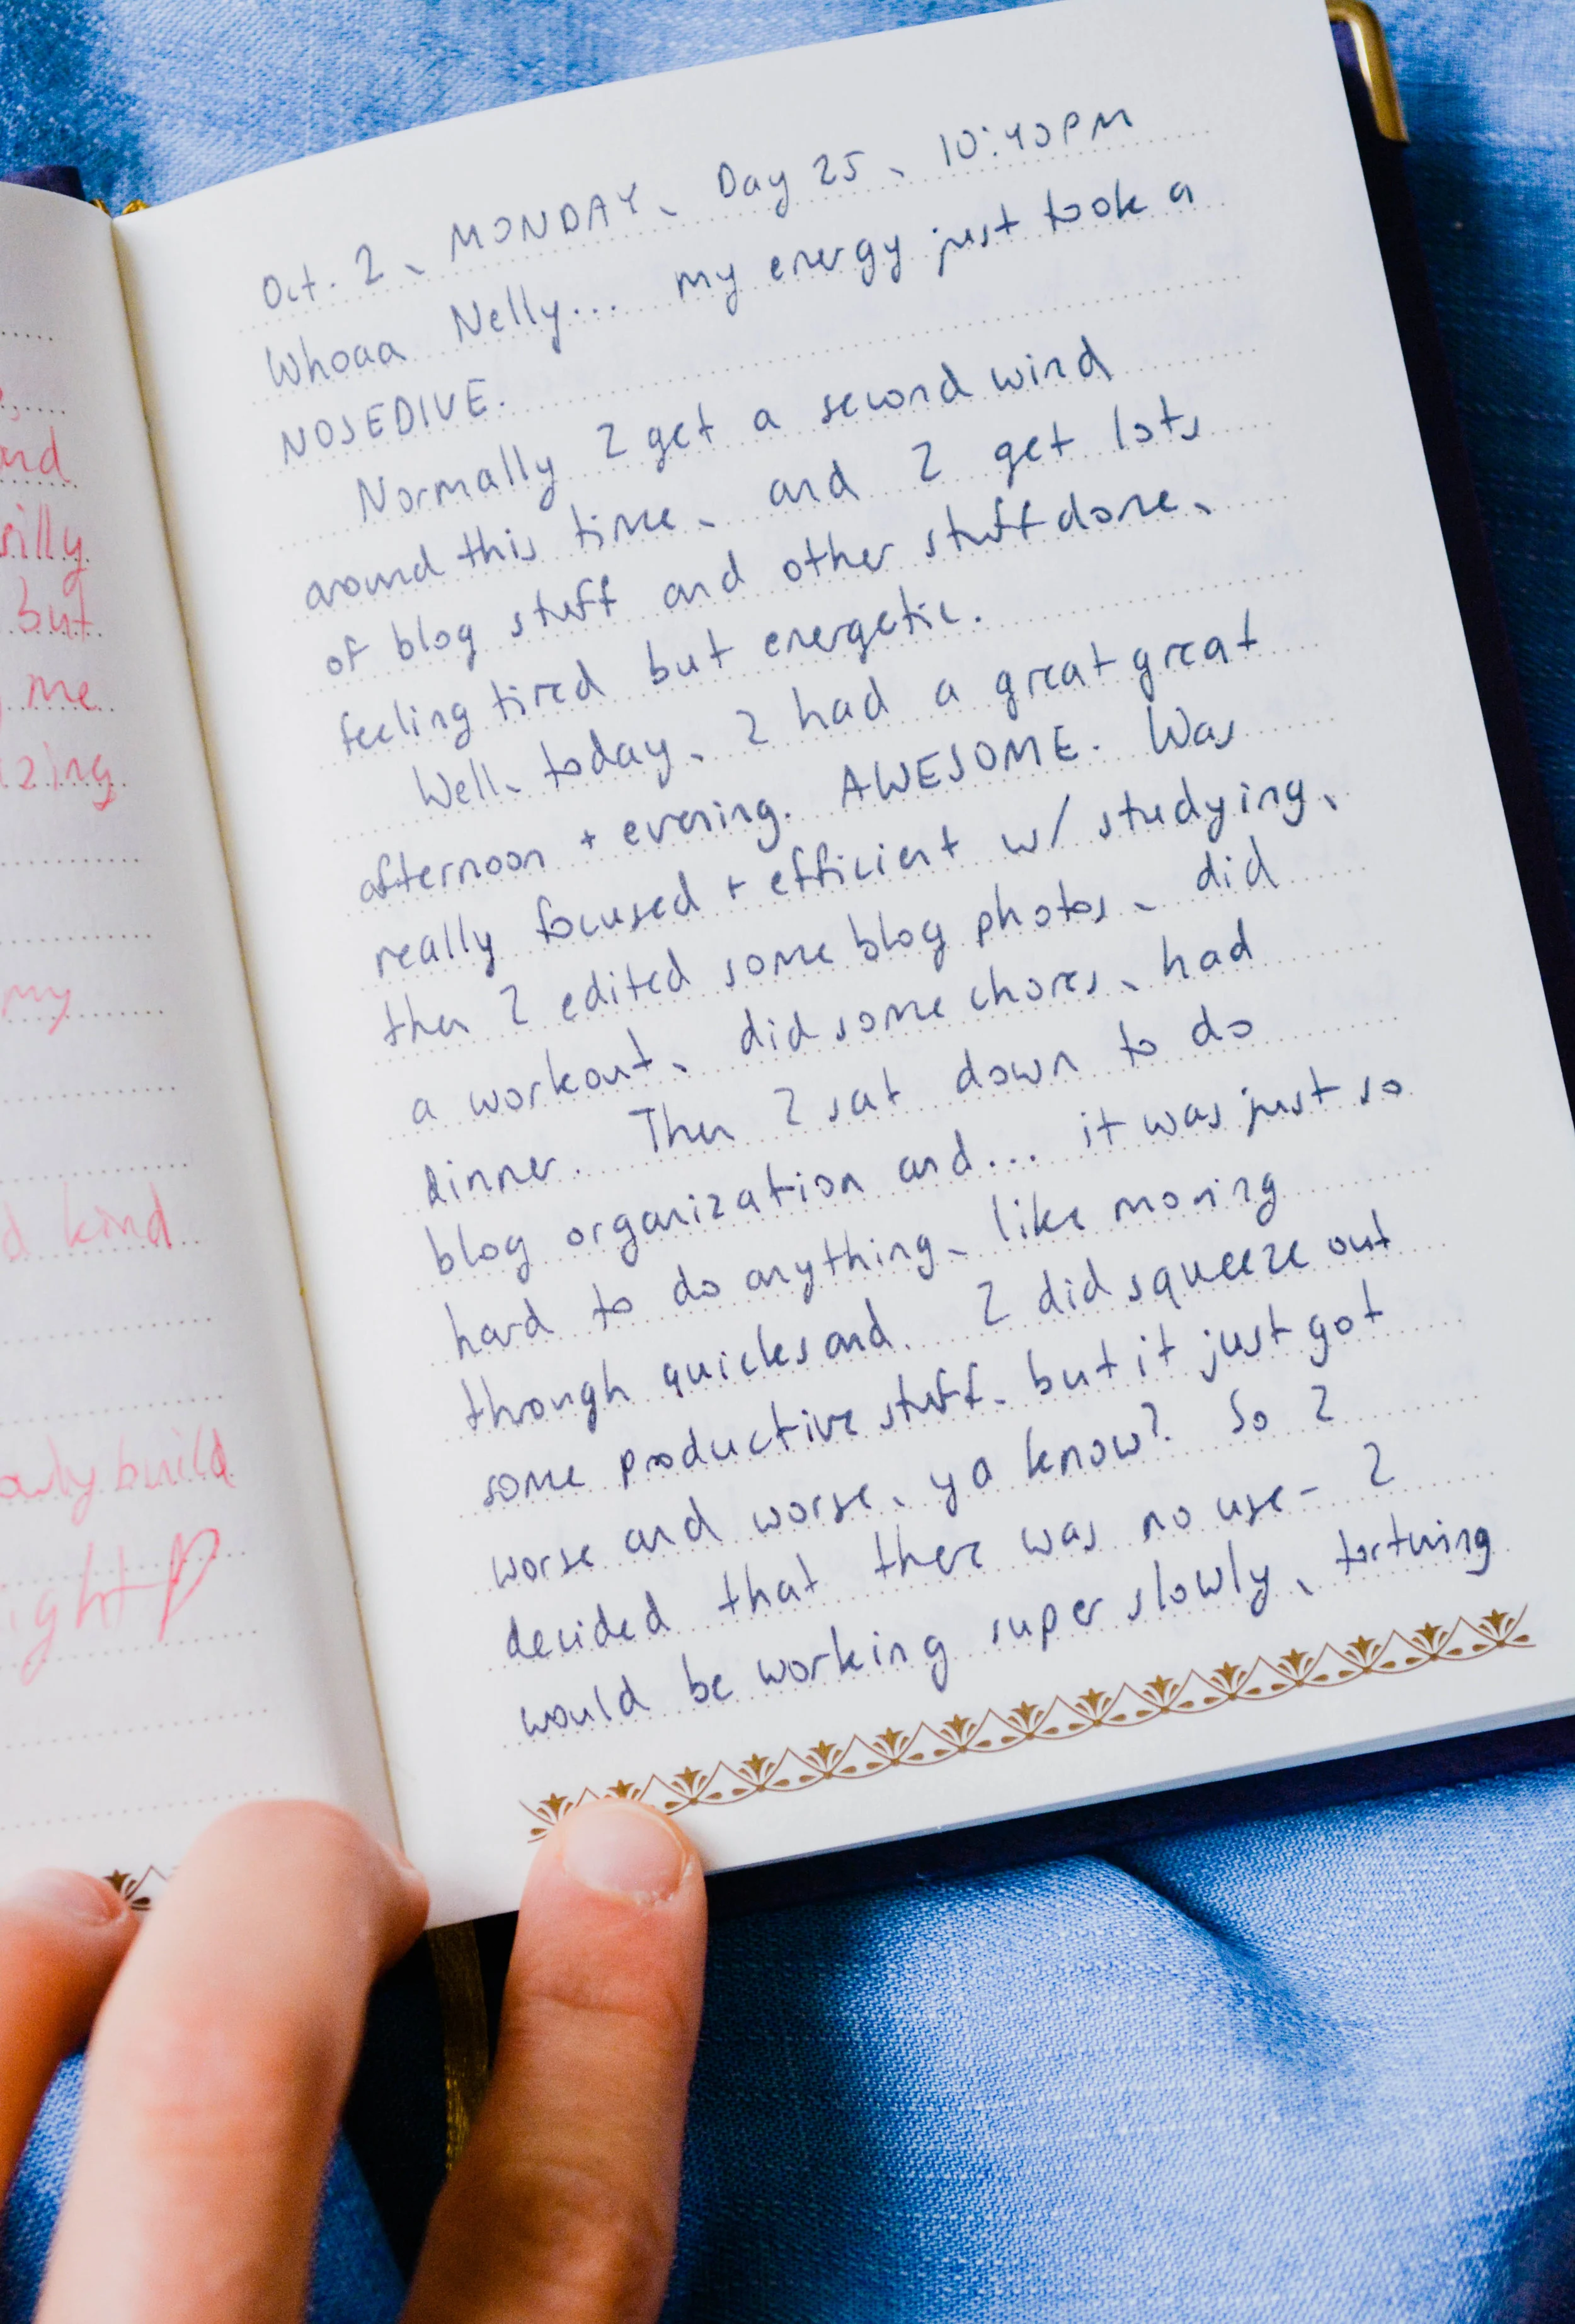 and
silly
but
me
zing
my
kind
build
Oct. 2, MONDAY, Day 25, 10:40PM
Whoaa Nelly... my energy just took a
NOSEDIVE.
Normally I get a second wind
around this time, and I get lots
of blog stuff and other stuff done,
feeling tired but energetic.
Well, today, I had a great great
afternoon + evening. AWESOME. Was
really focused + efficient w/ studying,
then I edited some blog photos, did
a workout, did some chores, had
dinner. Then I sat down to do
blog organization and... it was just so
hard to do anything, like moving
through quicksand. I did squeeze out
some productive stuff, but it just got
worse and worse, ya know? So I
decided that there was no use - I
would be working super slowly, torturing